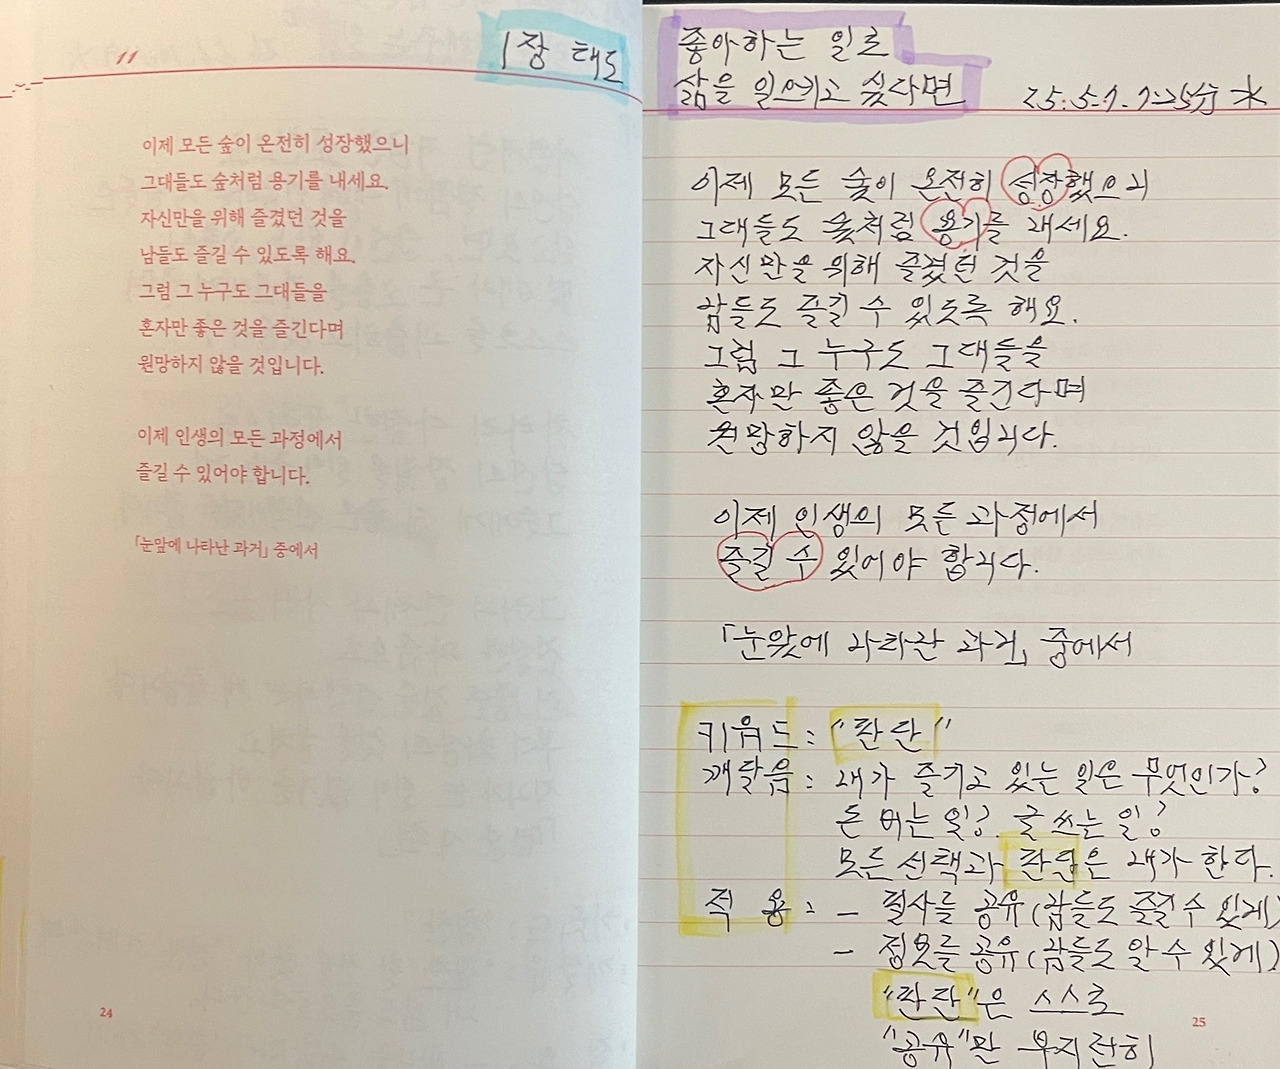 11
1장 태도
이제 모든 숲이 온전히 성장했으니
그대들도 숲처럼 용기를 내세요.
자신만을 위해 즐겼던 것을
남들도 즐길 수 있도록 해요.
그럼 그 누구도 그대들을
혼자만 좋은 것을 즐긴다며
원망하지 않을 것입니다.
이제 인생의 모든 과정에서
즐길 수 있어야 합니다.
「눈앞에 나타난 과거」 중에서
24
좋아하는 일로
삶을 일으키고 싶다면
25. 5. 7. 7:25分 水
이제 모든 숲이 온전히 성장했으니
그대들도 숲처럼 용기를 내세요.
자신만을 위해 즐겼던 것을
남들도 즐길 수 있도록 해요.
그럼 그 누구도 그대들을
혼자만 좋은 것을 즐긴다며
원망하지 않을 것입니다.
이제 인생의 모든 과정에서
즐길 수 있어야 합니다.
「눈앞에 나타난 과거」 중에서
키워드 : "판단"
깨달음 : 내가 즐기고 있는 일은 무엇인가?
돈 버는 일? 글 쓰는 일?
모든 선택과 판단은 내가 한다.
적용 : - 필사를 공유(남들도 즐길 수 있게)
- 정보를 공유(남들도 알 수 있게)
"판단"은 스스로
"공유"만 부지런히
25